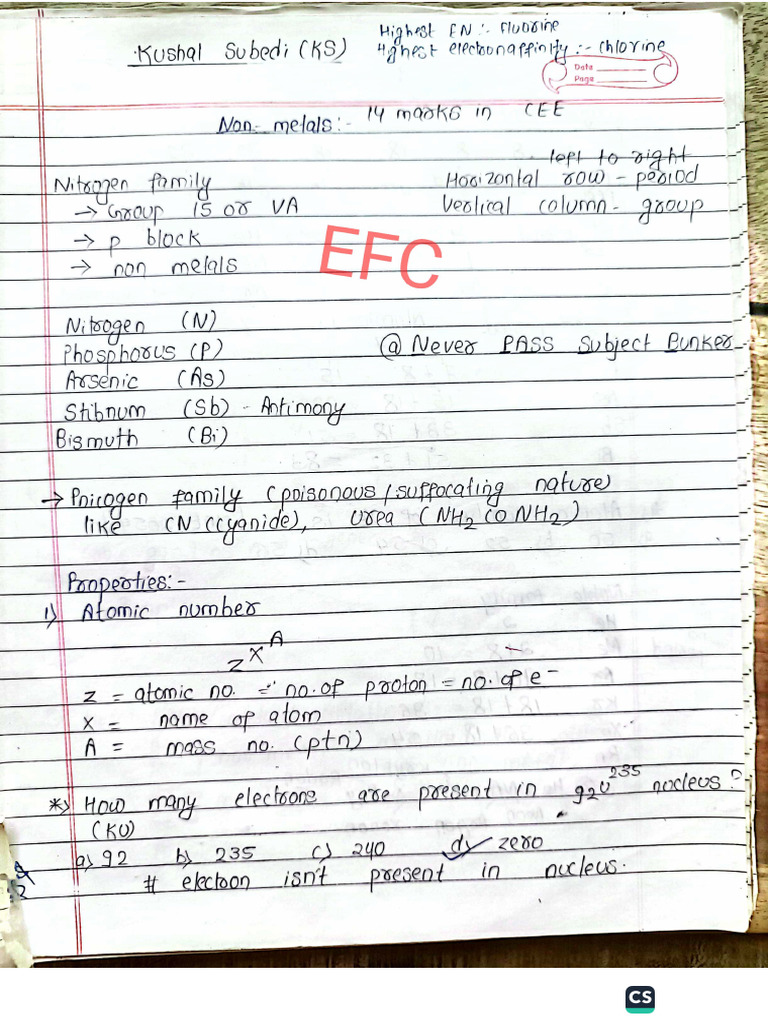 Highest EN :- Fluorine
Kushal Subedi (KS)
Highest electron affinity :- chlorine
Data
Page
Non-metals:- 14 marks in CEE
left to right
Nitrogen family
Horizontal row - period
→ Group 15 or VA
Vertical column - group
→ p block
→ non metals
EFC
Nitrogen (N)
Phosphorus (P)
@ Never PASS Subject Bunker
Arsenic (As)
Stibnum (Sb) - Antimony
Bismuth (Bi)
→ Pnicogen family (poisonous/suffocating nature)
like CN (cyanide), Urea (NH2CONH2)
Properties:-
1) Atomic number
zXA
z = atomic no. = no. of proton = no. of e-
x = name of atom
A = mass no. (p+n)
*) How many electrons are present in 92U235 nucleus?
(KU)
a) 92 b) 235 c) 240 d) zero
# electron isn't present in nucleus.
CS